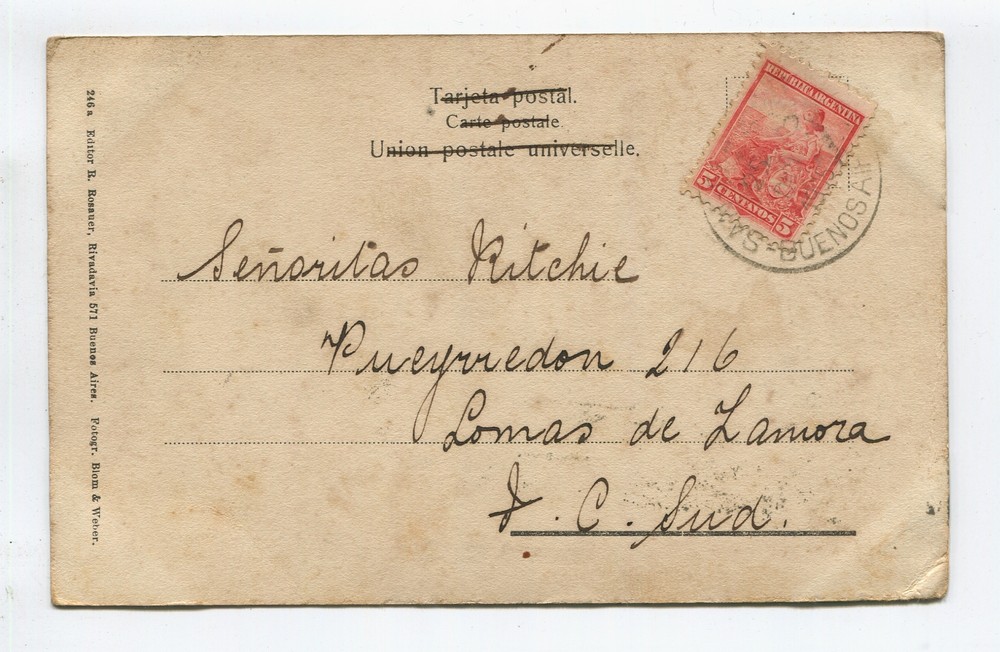 Tarjeta postal.
Carte postale.
Union postale universelle.
REPUBLICA ARGENTINA
5 CENTAVOS 5
BUENOS AIR
Señoritas Ritchie
Pueyrredon 216
Lomas de Zamora
F. C. Sud.
246a Editor R. Rosauer, Rivadavia 571 Buenos Aires. Fotogr. Blom & Weber.